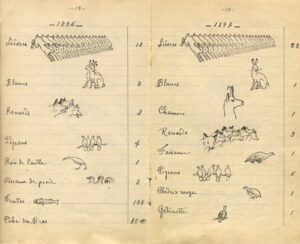 - 12 -
- 1896 -
Lièvres
18
Blancs
2
Renards
3
Pigeons
4
Roi de Caille
1
Oiseaux de proie
6
Truites
102
- 13 -
- 1897 -
Lièvres
Blancs
1
Chamois
1
Renards
Faisan
1
Pigeons
Perdrix rouge
1
Gélinotte
1